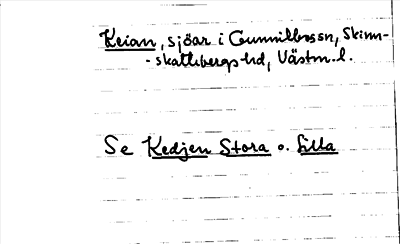 Keian, sjöar i Gunnilbo sn, Skinn-
-skattebergs hd, Västm. l.
Se Kedjen Stora o. Lilla